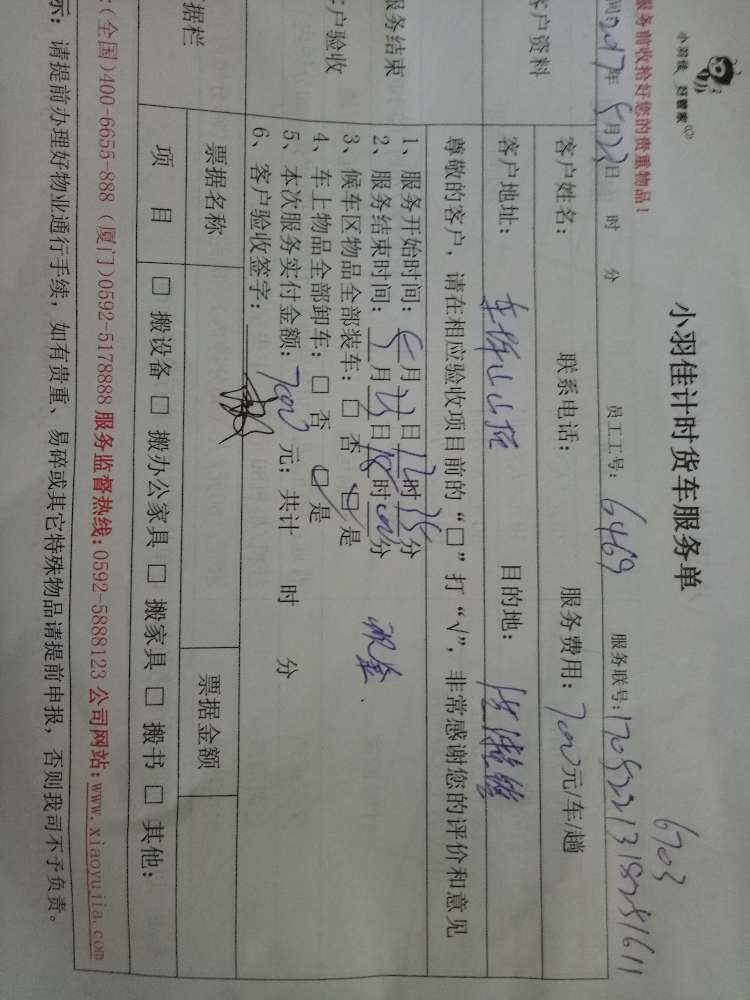 小羽佳 好管家
服务前收拾好您的贵重物品！
小羽佳计时货车服务单
6703
2017年5月23日 时 分 员工工号：6469 服务联号：
客户资料
客户姓名： 联系电话： 服务费用：700元/车/趟
客户地址： 目的地：
服务结束
客户验收
尊敬的客户，请在相应验收项目前的“□”打“√”，非常感谢您的评价和意见
1、服务开始时间：5月23日17时35分
2、服务结束时间：5月23日18时00分
3、候车区物品全部装车：□ 否 □ 是
现金、
4、车上物品全部卸车：□ 否 □ 是
5、本次服务实付金额：700元；共计 时 分
6、客户验收签字：
据栏
票据名称 票据金额
项 目 □ 搬设备 □ 搬办公家具 □ 搬家具 □ 搬书 □ 其他：
(全国)400-6655-888 (厦门)0592-5178888 服务监督热线:0592-5888123 公司网站:www.xiaoyujia.com
示：请提前办理好物业通行手续，如有贵重、易碎或其它特殊物品请提前申报，否则我司不予负责。